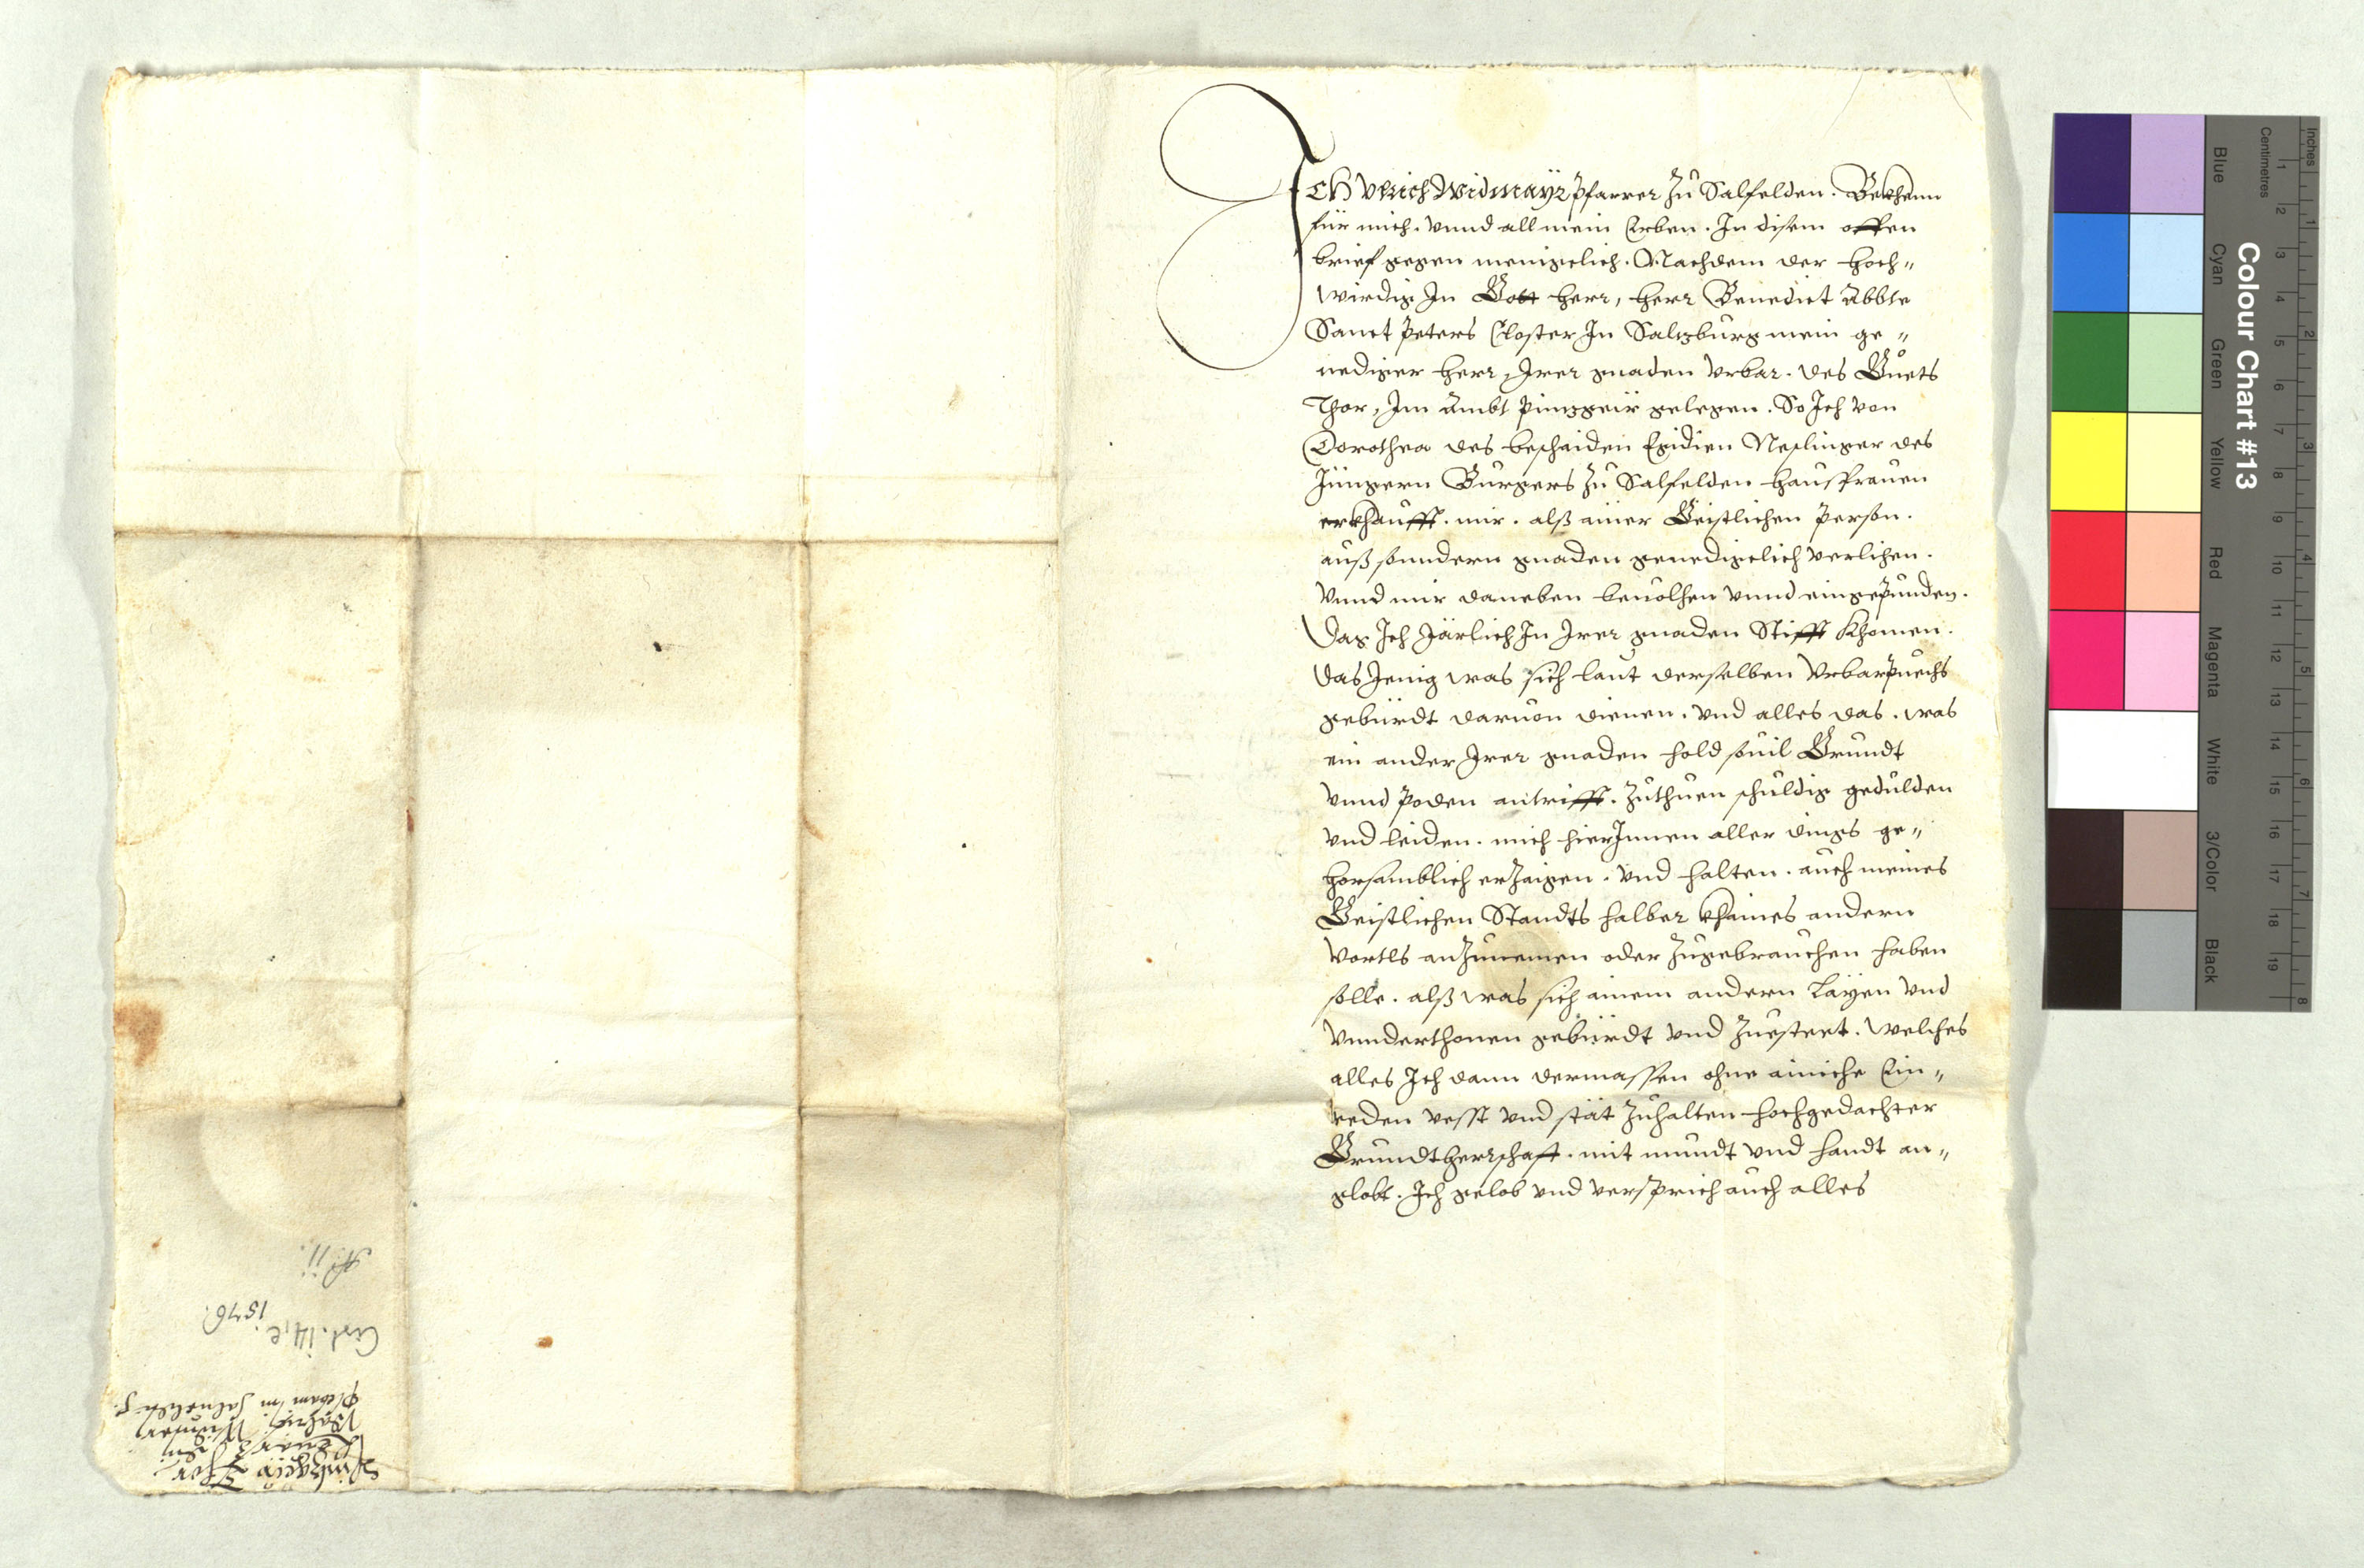 Ich Vlrich Widmayr Pfarrer zu Salfelden. Bekhenn
für mich. vnnd all mein Erben. In disem offen
brief gegen menigclich. Nachdem der hoch„
wirdig In Gott herr, herr Benedict Abbte
Sanct Peters Closter In Saltzburg mein ge„
nediger herr, Irer gnaden Vrbar. des Guets
Thor, Im Ambt Pintzgeir gelegen. So Ich von
Dorothea des beschaiden Egidien Neslinger des
Jüngern Burgers zu Salfelden hausfrauen
erkhaufft. mir. alß ainer Geistlichen Person.
auß sonndern gnaden genedigclich verlihen.
Vnnd mir daneben beuolhen vnnd eingepunden.
Das Ich Järlich In Irer gnaden Stifft khomen.
das Jenig was sich laut derselben Vrbarpuechs
gebürdt daruon dienen. vnd alles das. was
ein ander Irer gnaden hold souil Grundt
vnnd Poden antrifft. zuthuen schuldig gedulden
vnd leiden. mich hierInnen aller dings ge„
horsamblich erzaigen. vnd halten. auch meines
Geistlichen Standts halber khaines andern
vortls anzunemen oder zugebrauchen haben
solle. alß was sich ainem andern Layen vnd
vnnderthonen gebürdt vnd zuesteet. welches
alles Ich dann dermassen ohne ainiche Ein„
reden vesst vnd stät zuhalten hochgedachter
Grundtherrschaft. mit mundt vnd handt an„
globt. Ich gelob vnd versprich auch alles
Pintzgeir Thor
Reuers
Widmair
1576.
Colour Chart #13
Blue
Cyan
Green
Yellow
Red
Magenta
White
3/Color
Black
Inches
1
2
3
4
5
6
7
8
Centimetres
1
2
3
4
5
6
7
8
9
10
11
12
13
14
15
16
17
18
19